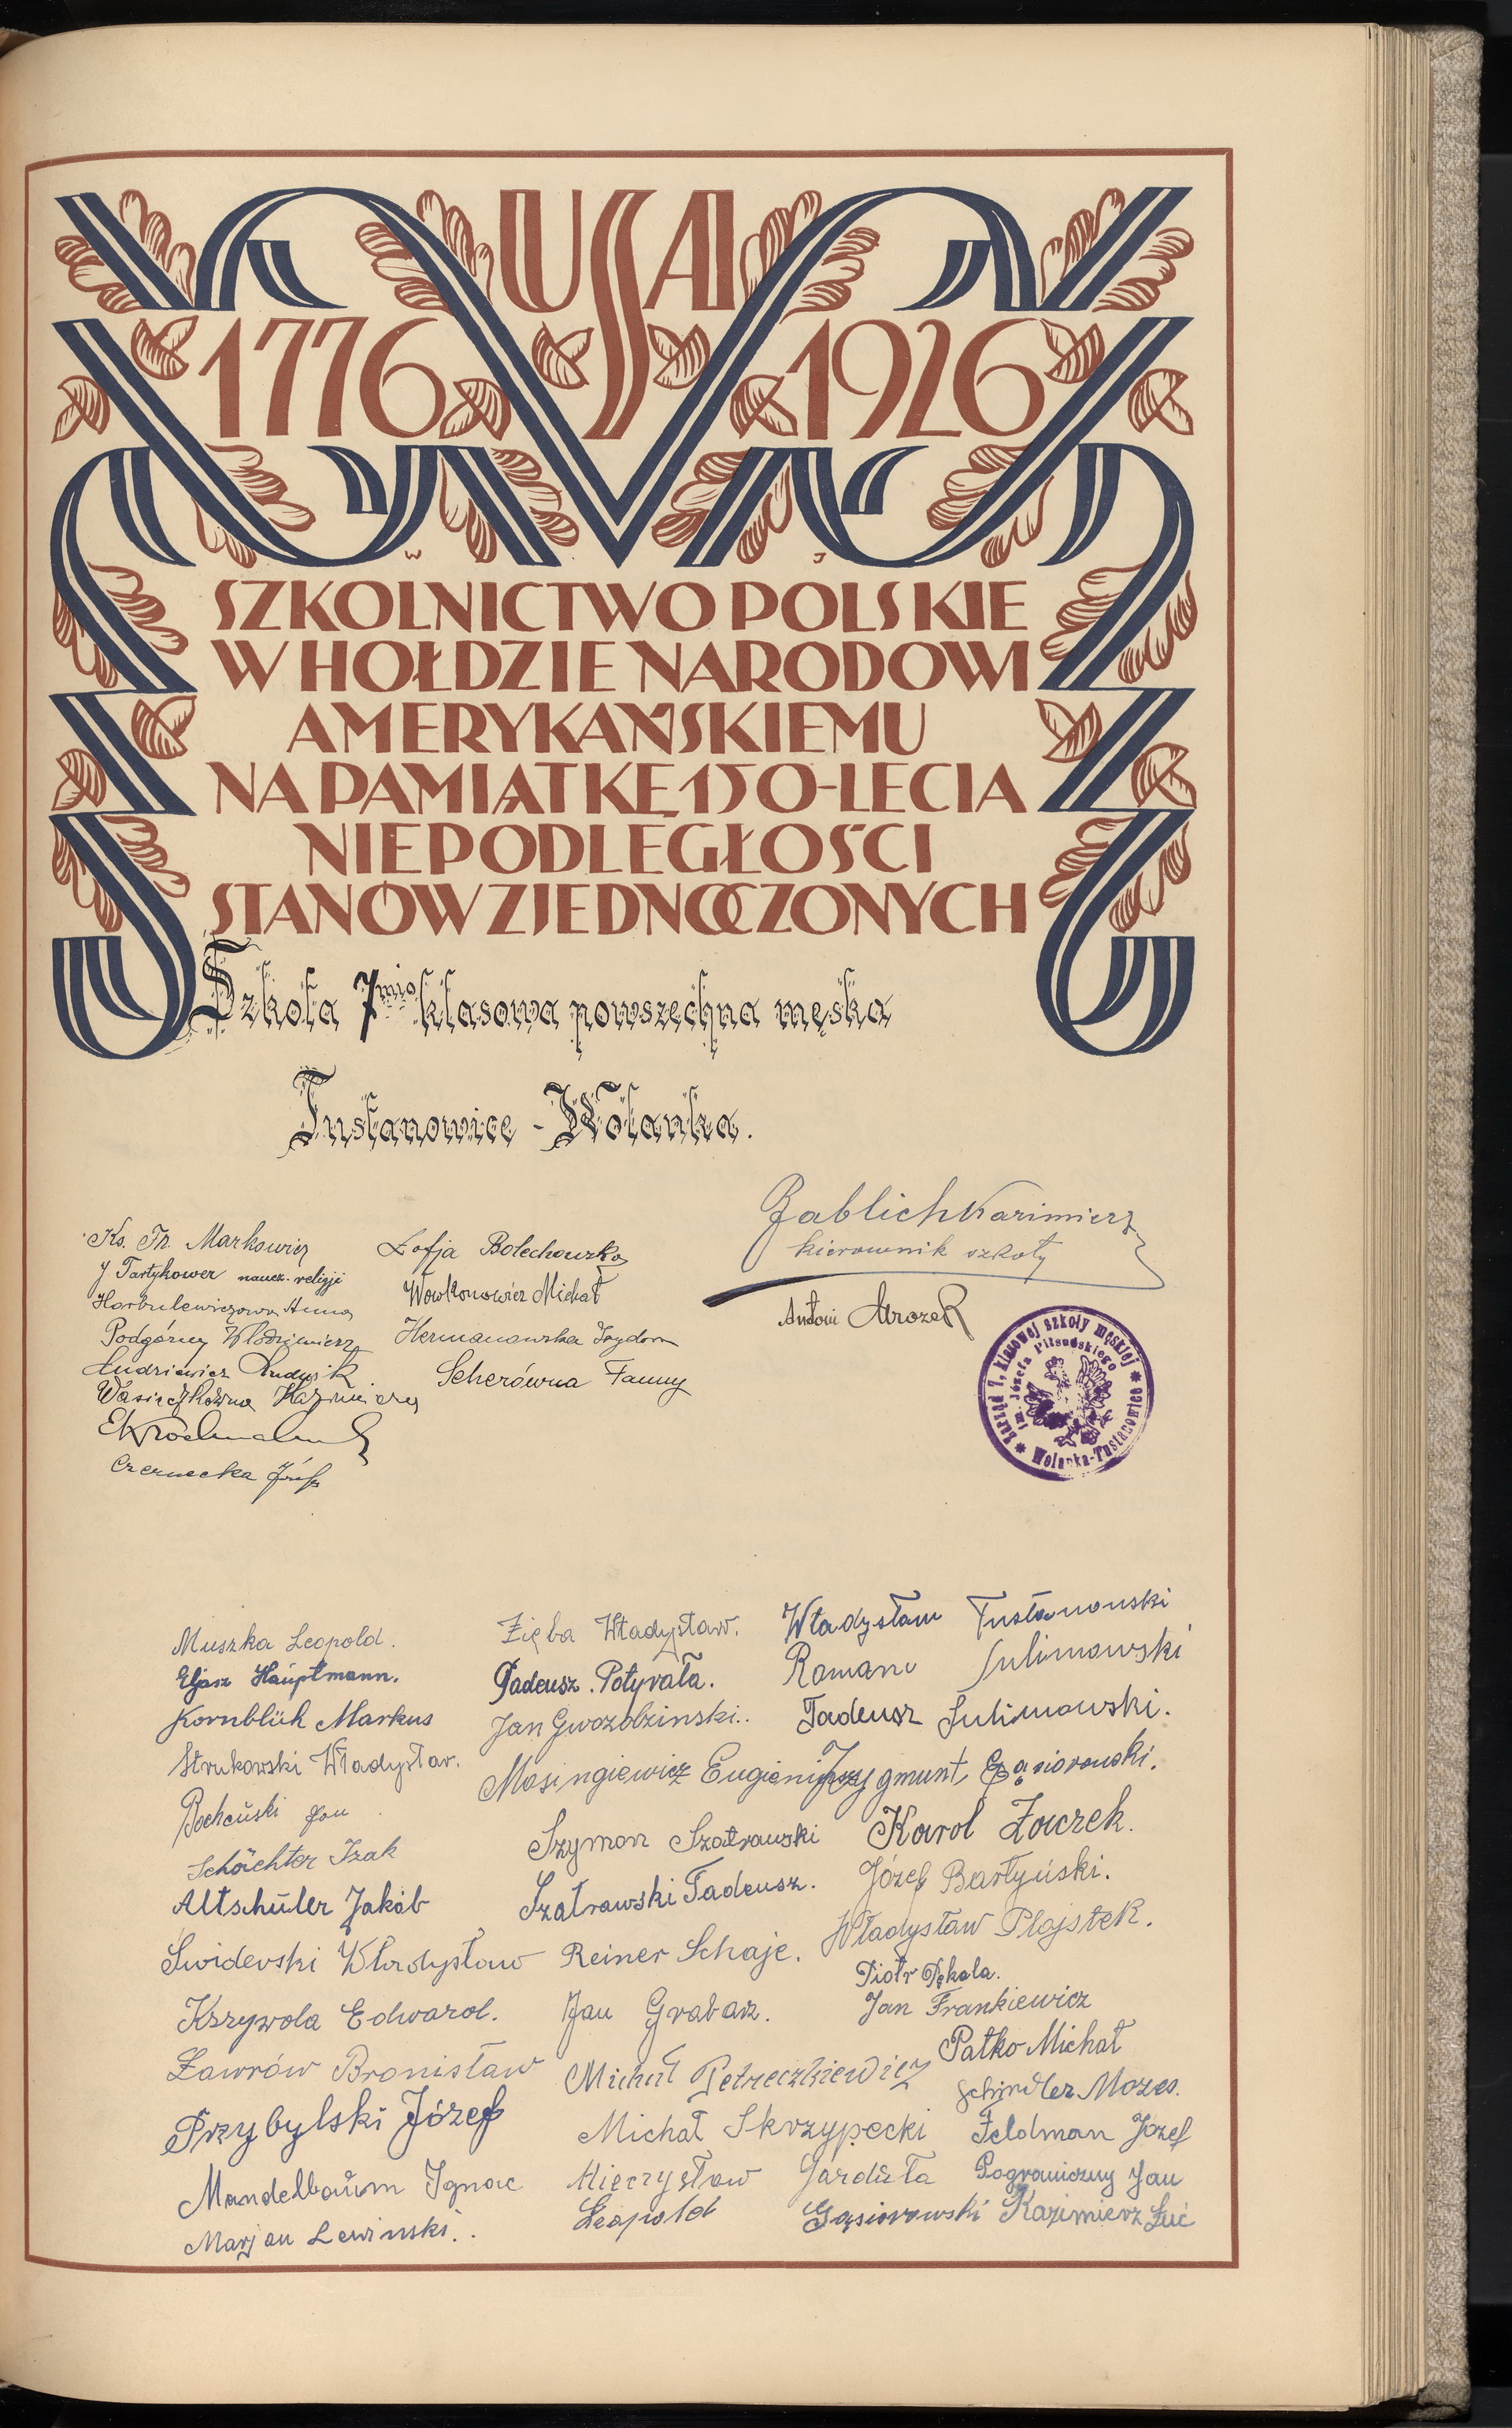 USA
1776 1926
W J
SZKOLNICTWO POLSKIE
W HOŁDZIE NARODOWI
AMERYKAŃSKIEMU
NA PAMIĄTKĘ 150-LECIA
NIEPODLEGŁOŚCI
STANÓW ZJEDNOCZONYCH
Szkoła 7mio klasowa powszechna męska
Tustanowice - Wolanka.
Zablich Kazimierz
kierownik szkoły
Antoni Mrozek
Ks. Fr. Markowicz
J Tartykower naucz. religji
Harbulewiczowa Anna
Podgórny Włodzimierz
Andrzewicz Ludwik
Kazimiera
Czernecka
Zofja
Wowkonowicz Michał
Hermanowska Izydora
Scherówna Fanny
Zarząd 7. klasowej szkoły męskiej
im. Józefa Piłsudskiego
* Wolanka-Tustanowice *
Muszka Leopold.
Eljasz Hauptmann.
Kornblüh Markus
Strukowski Władysław.
Jan
Schächter Izak
Altschüler Jakób
Świderski Władysław
Krzywda Edward.
Zawrów Bronisław
Przybylski Józef
Mandelbaum Ignac
Marjan Lewinski.
Zięba Władysław.
Tadeusz Potyrała.
Jan Gwozdzinski..
Masingiewicz Eugeniusz
Szymon Szatrawski
Szatrawski Tadeusz.
Reiner Schaje.
Jan Grabarz.
Michał Petreczkiewicz
Michał Skrzypecki
Mieczysław Gardała
Leopold Gąsiorowski
Władysław Tustanowski
Roman Sulimowski
Tadeusz Sulimowski.
Zygmunt Gąsiorowski.
Karol Żaczek.
Józef Bartyński.
Władysław Plajstek.
Piotr Pękala.
Jan Frankiewicz
Patko Michał
Schindler Mozes.
Feldman Józef
Pograniczny Jan
Kazimierz Łuć